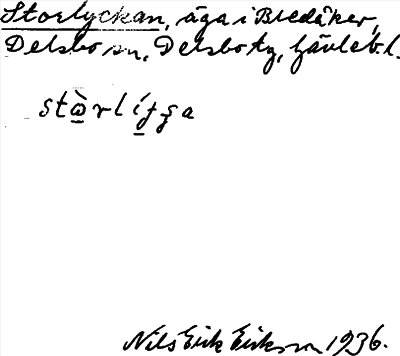 Storlyckan, äga i Bredåker,
Delsbo sn, Delsbo tg, Gävleb.l.
Nils Erik Eriksson 1936.